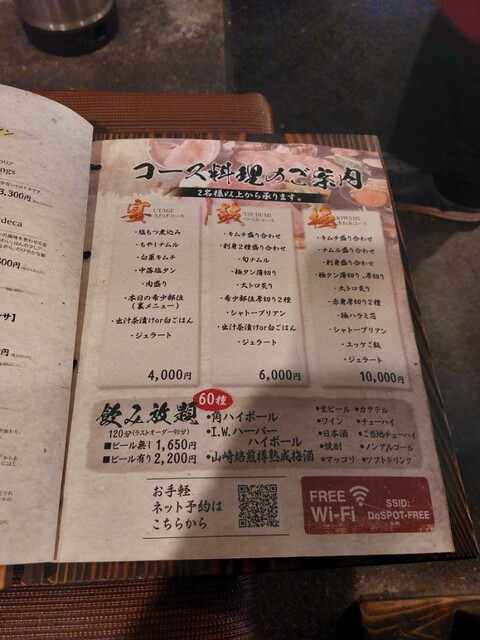 ngs
3,300円
deca
500円
サ】
コース料理のご案内
2名様以上から承ります。
宴 UTAGE うたげコース
・塩もつ煮込み
・もやしナムル
・白菜キムチ
・中落塩タン
・肉盛り
・本日の希少部位
(裏メニュー)
・出汁茶漬けor白ごはん
・ジェラート
4,000円
鼓 TSUDUMI つづみコース
・キムチ盛り合わせ
・刺身2種盛り合わせ
・旬ナムル
・極タン薄切り
・大トロ炙り
・希少部位厚切り2種
・シャトーブリアン
・出汁茶漬けor白ごはん
・ジェラート
6,000円
極 KIWAMI きわみコース
・キムチ盛り合わせ
・ナムル盛り合わせ
・刺身盛り合わせ
・極タン薄切り、厚切り
・大トロ炙り
・赤身厚切り2種
・極ハラミ芯
・シャトーブリアン
・ユッケご飯
・ジェラート
10,000円
飲み放題 60種
120分(ラストオーダー90分)
■ビール無し 1,650円
■ビール有り 2,200円
・角ハイボール
・I.W.ハーパー
ハイボール
・山崎焙煎樽熟成梅酒
・生ビール ・カクテル
・ワイン ・チューハイ
・日本酒 ・ご当地チューハイ
・焼酎 ・ノンアルコール
・マッコリ ・ソフトドリンク
お手軽
ネット予約は
こちらから
FREE
Wi-Fi
SSID:
DoSPOT-FREE